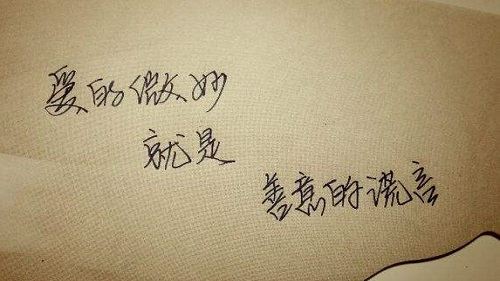 爱的微妙
就是
善意的谎言